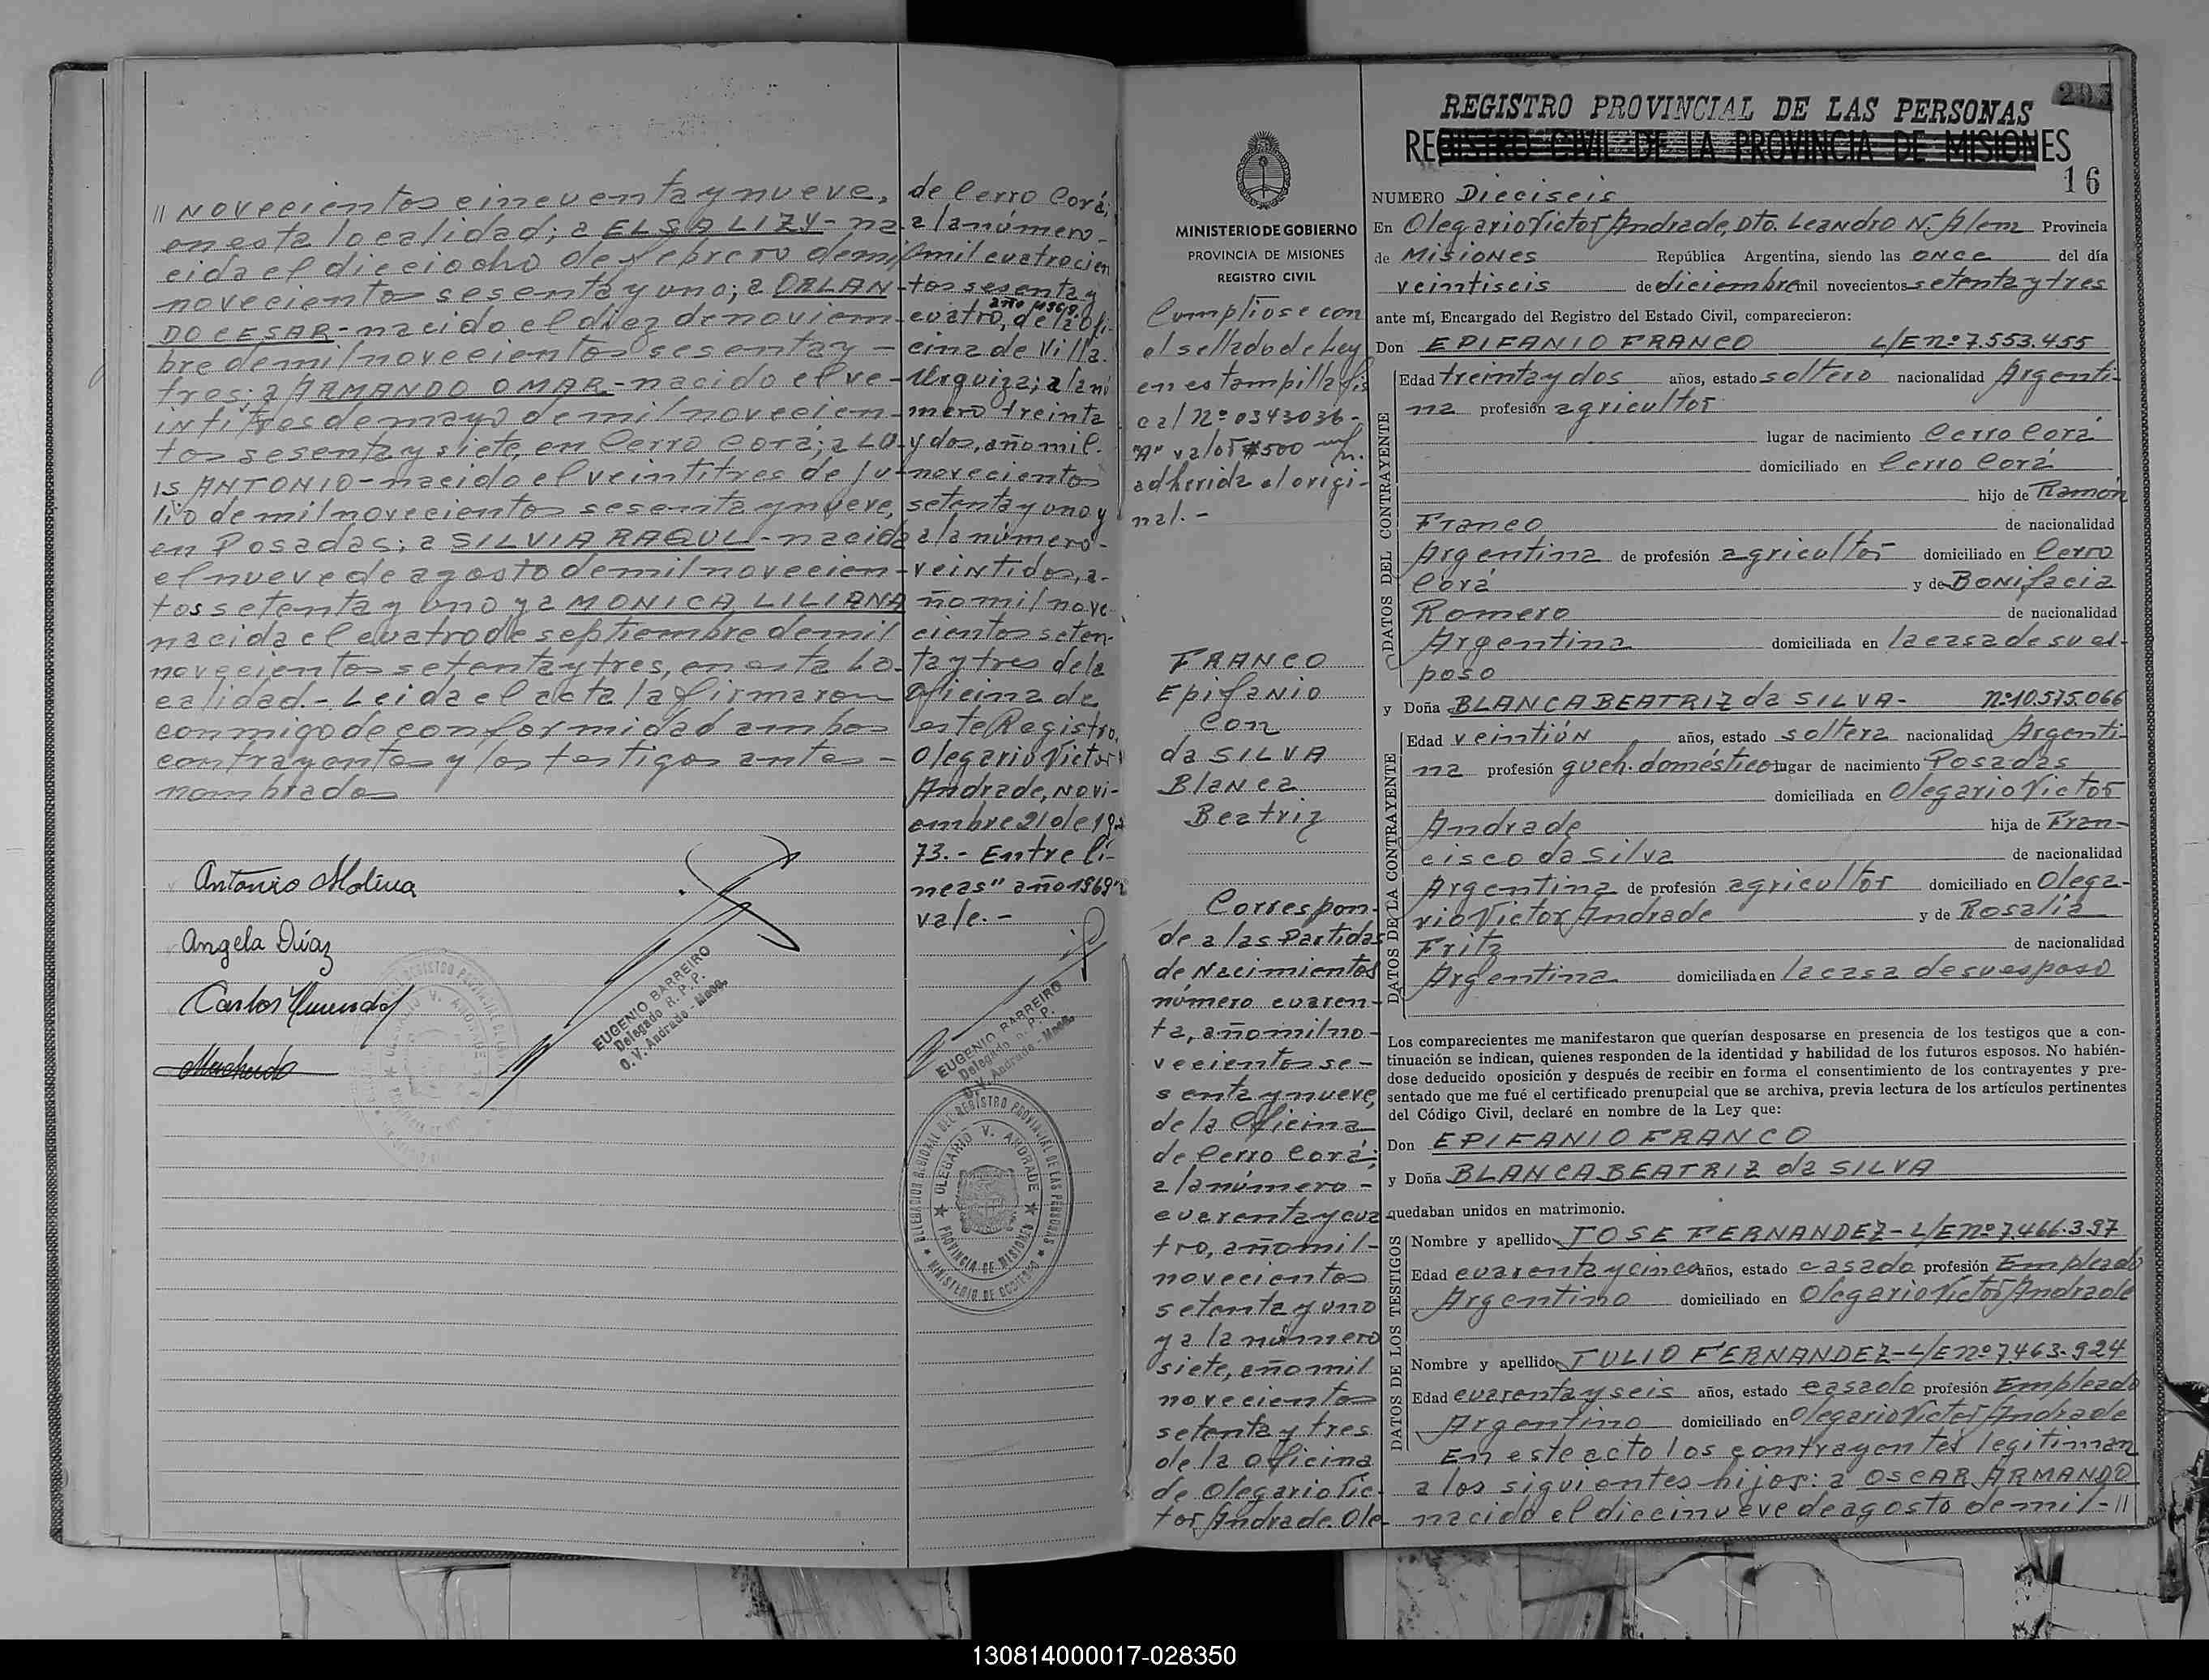 // novecientos cincuenta y nueve,
en esta localidad; a ELSA LIZY- na-
cida el dieciocho de febrero de mil
novecientos sesenta y uno; a ORLAN-
DO CESAR- nacido el diez de noviem-
bre de mil novecientos sesenta y -
tres; a ARMANDO OMAR- nacido el ve-
intitres de mayo de mil novecien-
tos sesenta y siete, en Cerro Corá; a LU-
IS ANTONIO- nacido el veintitres de ju-
lio de mil novecientos sesenta y nueve,
en Posadas; a SILVIA RAQUL- nacida
el nueve de agosto de mil novecien-
tos setenta y uno y a MONICA LILIANA
nacida el cuatro de septiembre de mil
novecientos setenta y tres, en esta Lo-
calidad.- Leida el acta la firmaron
conmigo de conformidad ambos
contrayentes y los testigos antes -
nombrados
Antonio Molina
Angela Díaz
Carlos
EUGENIO BARREIRO
Delegado R. P. P.
O. V. Andrade - Mnes.
de Cerro Corá;
a la número -
mil cuatrocien
tos sesenta y
año 1969
cuatro, de la ofi-
cina de Villa
Urquiza; a la nú
mero treinta
y dos, año mil
novecientos
setenta y uno y
a la número -
veintidos, a-
ño mil nove
cientos seten-
ta y tres de la
Oficina de
este Registro.
Olegario Victor
Andrade, novi-
embre 21 de 19
73.- Entre lí-
neas" año 1969"
vale.-
EUGENIO BARREIRO
Delegado R. P. P.
O. V. Andrade - Mnes.
DELEGACION REGIONAL DEL REGISTRO PROVINCIAL DE LAS PERSONAS
OLEGARIO V. ANDRADE
PROVINCIA DE MISIONES
MINISTERIO DE GOBIERNO
MINISTERIO DE GOBIERNO
PROVINCIA DE MISIONES
REGISTRO CIVIL
Cumpliose con
el sellado de Ley
en estampilla fis
cal Nº 0343036-
"A" valor $500 m/n.
adherida al origi-
nal.-
FRANCO
Epifanio
Con
da SILVA
Blanca
Beatriz
Correspon-
de a las Partidas
de Nacimientos
número cuaren-
ta, año mil no-
vecientos se-
senta y nueve,
de la Oficina
de Cerro Corá;
a la número -
cuarenta y cua
tro, año mil-
novecientos
setenta y uno
y a la número
siete, año mil
novecientos
setenta y tres
de la oficina
de Olegario Vic-
tor Andrade. Ole-
REGISTRO PROVINCIAL DE LAS PERSONAS
REGISTRO CIVIL DE LA PROVINCIA DE MISIONES
16
NUMERO Dieciseis
En Olegario Victor Andrade, Dto. Leandro N. Alem Provincia
de Misiones República Argentina, siendo las once del día
veintiseis de diciembre mil novecientos setenta y tres
ante mí, Encargado del Registro del Estado Civil, comparecieron:
Don EPIFANIO FRANCO L/E nº 7.553.455
DATOS DEL CONTRAYENTE
Edad treinta y dos años, estado soltero nacionalidad Argenti-
na profesión agricultor
lugar de nacimiento Cerro Corá
domiciliado en Cerro Corá
hijo de Ramón
Franco de nacionalidad
Argentina de profesión agricultor domiciliado en Cerro
Corá y de Bonifacia
Romero de nacionalidad
Argentina domiciliada en la casa de su es-
poso
y Doña BLANCA BEATRIZ da SILVA- nº 10.575.066
DATOS DE LA CONTRAYENTE
Edad veintiún años, estado soltera nacionalidad Argenti-
na profesión queh. doméstico lugar de nacimiento Posadas
domiciliada en Olegario Victor
Andrade hija de Fran-
cisco da Silva de nacionalidad
Argentina de profesión agricultor domiciliado en Olega-
rio Victor Andrade y de Rosalia
Fritz de nacionalidad
Argentina domiciliada en la casa de su esposo
Los comparecientes me manifestaron que querían desposarse en presencia de los testigos que a con-
tinuación se indican, quienes responden de la identidad y habilidad de los futuros esposos. No habién-
dose deducido oposición y después de recibir en forma el consentimiento de los contrayentes y pre-
sentado que me fué el certificado prenupcial que se archiva, previa lectura de los artículos pertinentes
del Código Civil, declaré en nombre de la Ley que:
Don EPIFANIO FRANCO
y Doña BLANCA BEATRIZ da SILVA
quedaban unidos en matrimonio.
DATOS DE LOS TESTIGOS
Nombre y apellido JOSE FERNANDEZ- L/E nº 7.466.397
Edad cuarenta y cinco años, estado casado profesión Empleado
Argentino domiciliado en Olegario Victor Andrade
Nombre y apellido JULIO FERNANDEZ- L/E nº 7.463.924
Edad cuarenta y seis años, estado casado profesión Empleado
Argentino domiciliado en Olegario Victor Andrade
En este acto los contrayentes legitiman
a los siguientes hijos: a OSCAR ARMANDO
nacido el diecinueve de agosto de mil- //
130814000017-028350